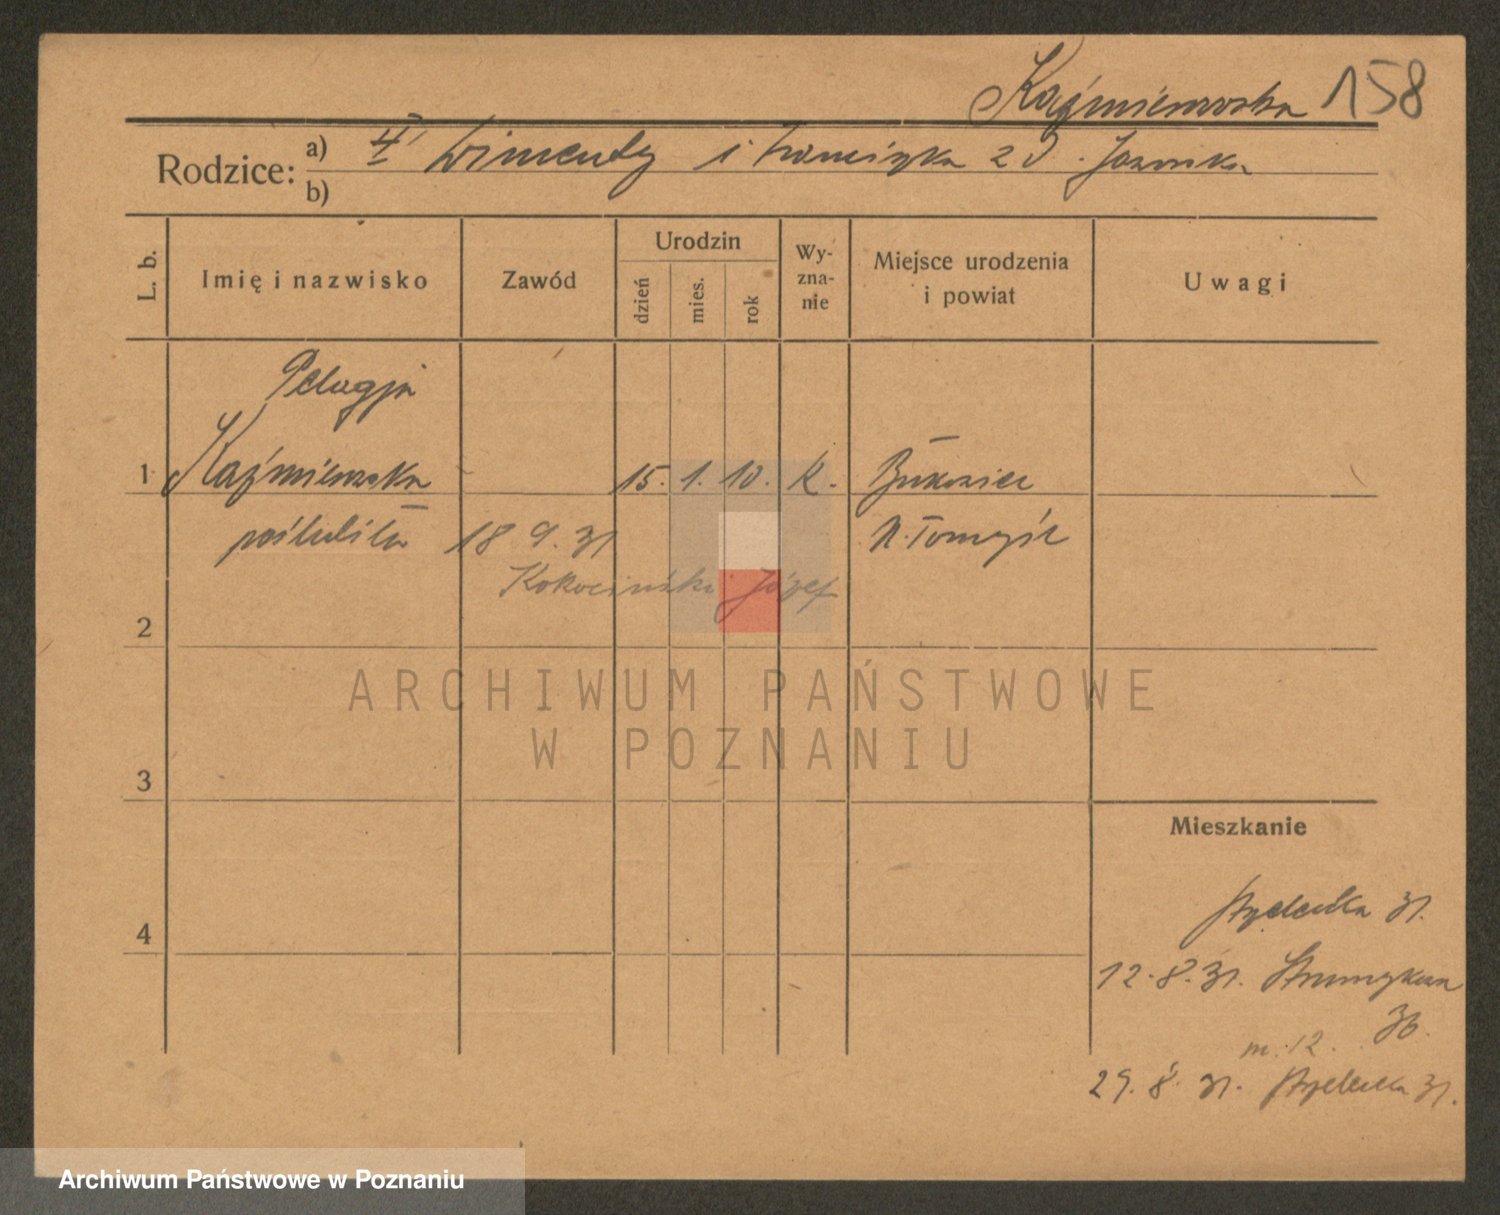 Kaźmierowska 158
Rodzice: a) i Franciszka z d.
b)
L. b. Imię i nazwisko Zawód Urodzin dzień mies. rok Wy-zna-nie Miejsce urodzenia i powiat Uwagi
Pelagja
1 Kaźmierowska 15. 1. 10. K. Bukowiec
poślubiła 18 9. 31 N. Tomyśl
Kokociński Józef
2
ARCHIWUM PAŃSTWOWE
W POZNANIU
3
Mieszkanie
4
31.
12. 8. 31. Strumykowa
36.
m. 12.
29. 8. 31. 31.
Archiwum Państwowe w Poznaniu